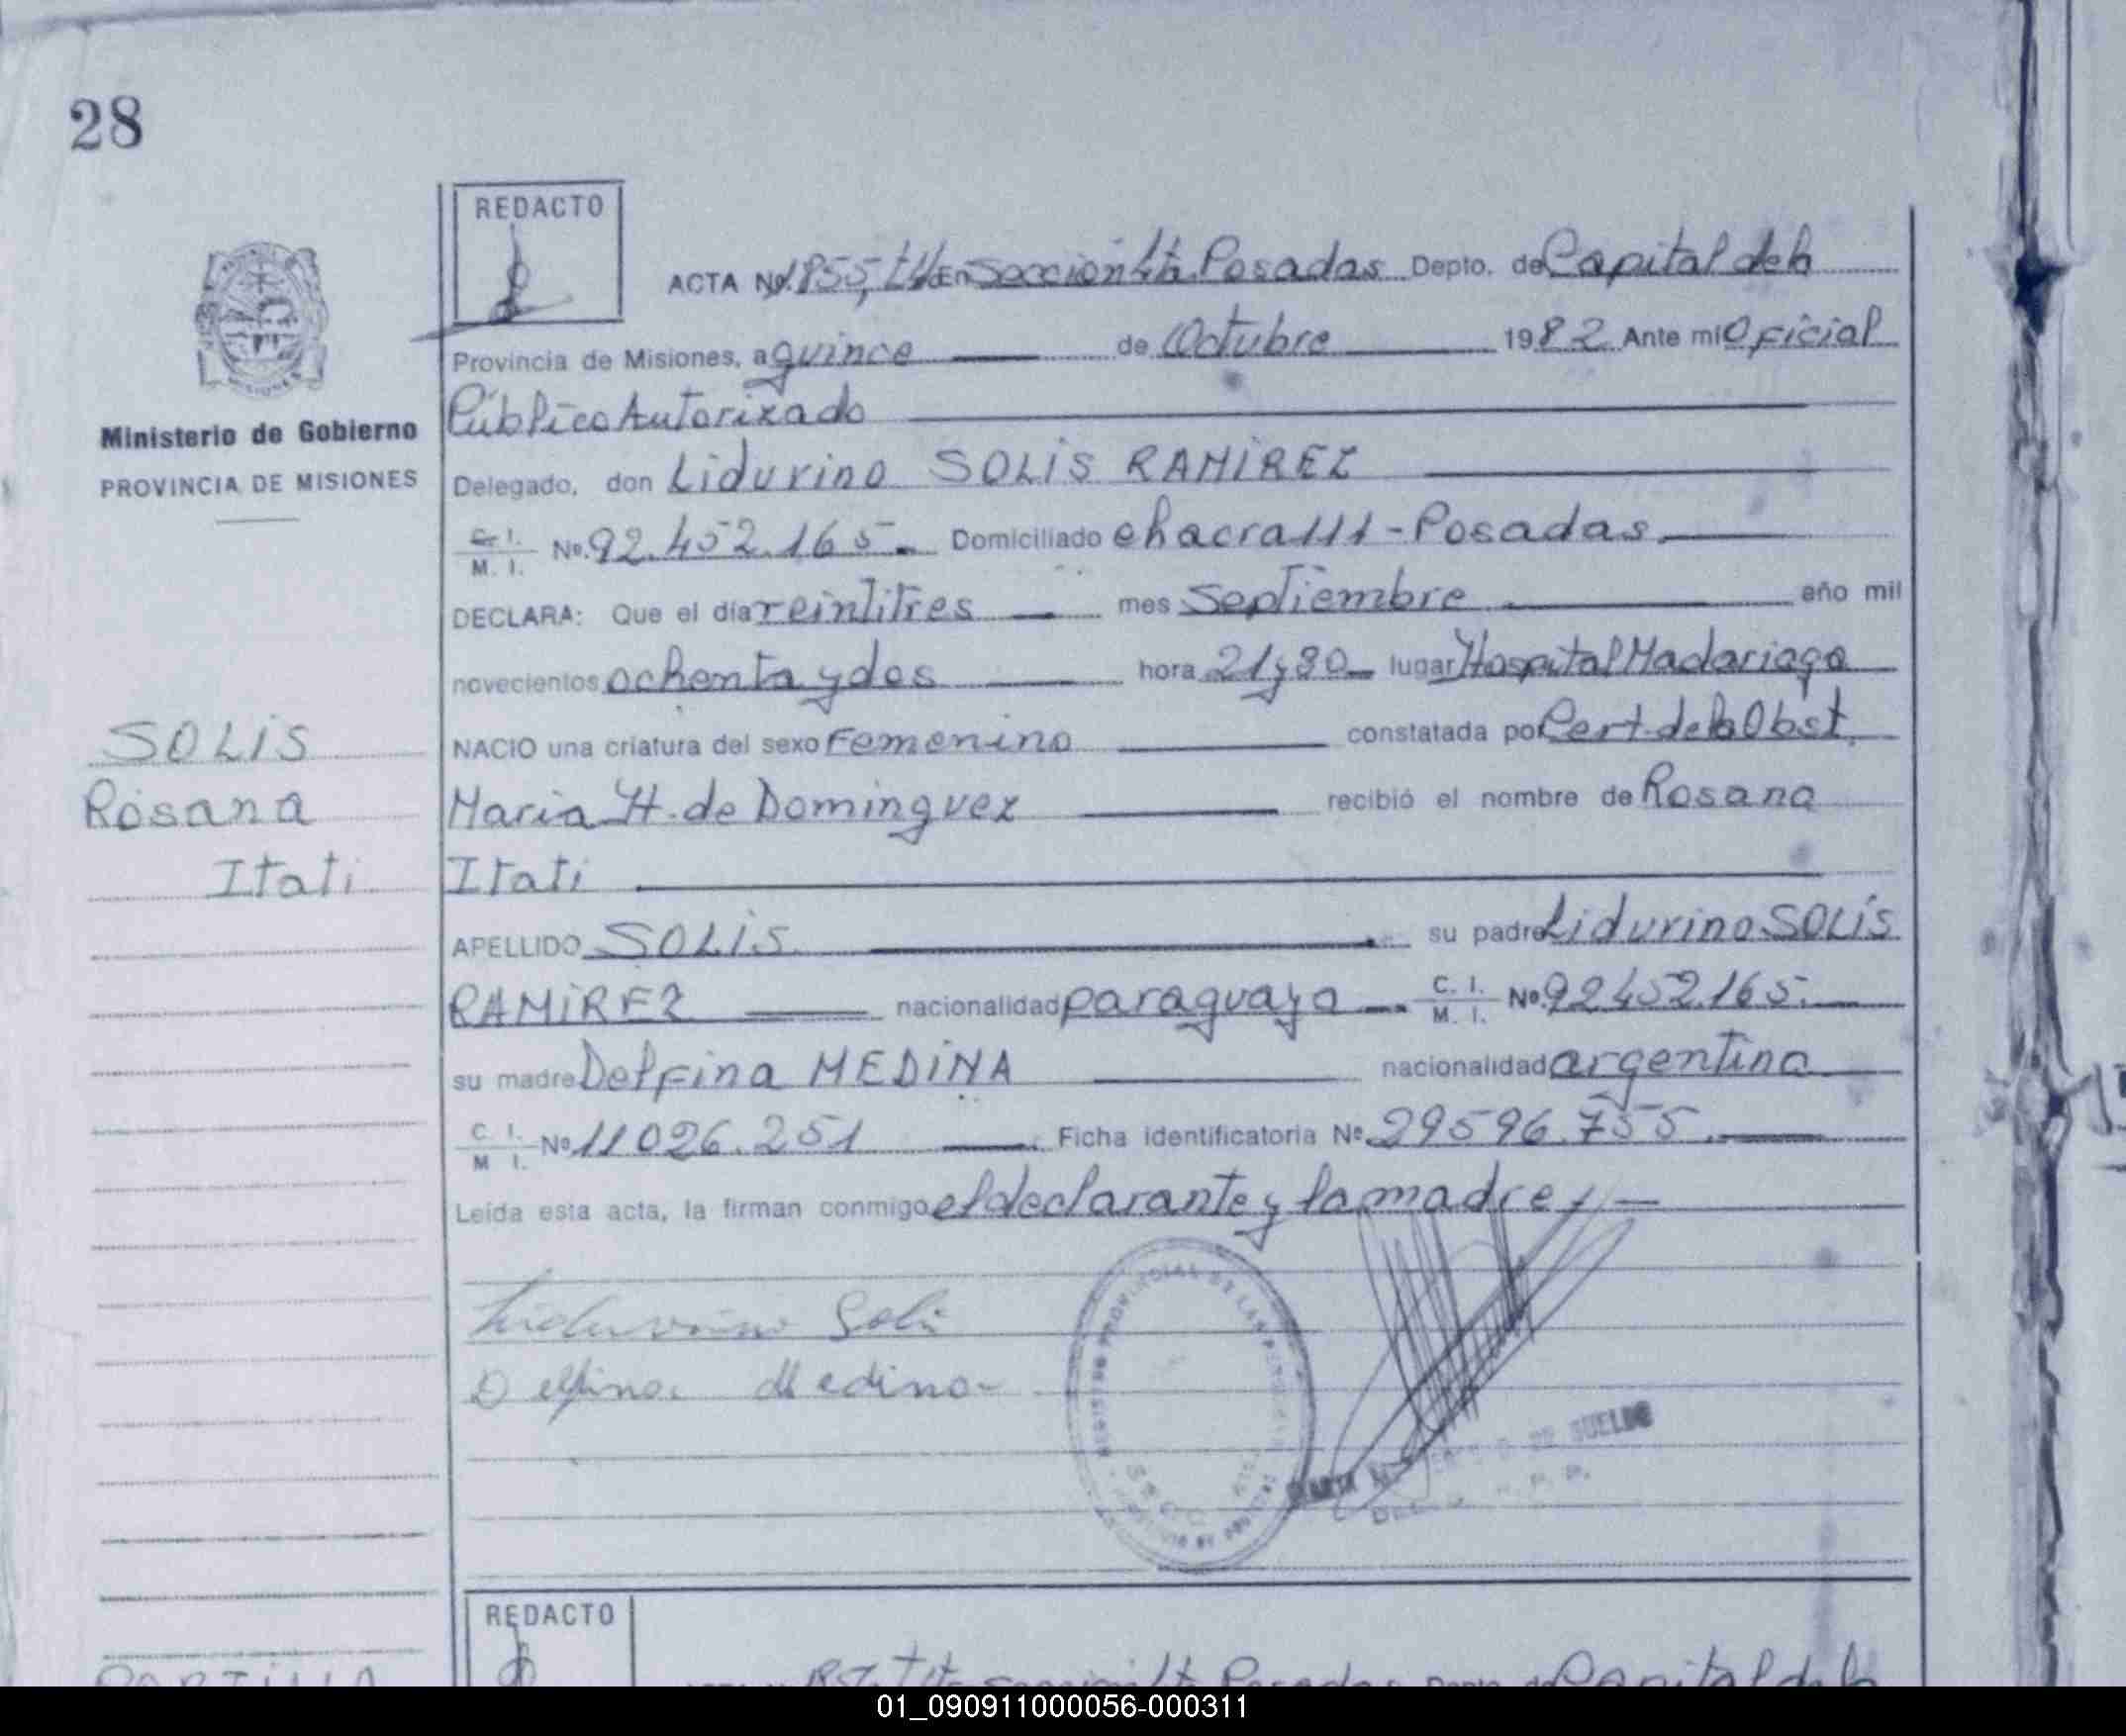 28
REDACTO
ACTA No. 1855, En Sección 4ta Posadas Depto. de Capital de la
Provincia de Misiones, a quince de Octubre 1982 Ante mí Oficial
Público Autorizado
Ministerio de Gobierno
PROVINCIA DE MISIONES
Delegado, don Lidurino SOLIS RAMIREZ
C. I. M. I. No. 92.452.165.- Domiciliado chacra 111 - Posadas.
DECLARA: Que el día veintitres mes Septiembre año mil
novecientos ochenta y dos hora 21 y 30 lugar Hospital Madariaga
SOLIS
NACIO una criatura del sexo Femenino constatada por Cert. de la Obst.
Rosana
Maria H. de Dominguez recibió el nombre de Rosana
Itati
Itati
APELLIDO SOLIS su padre Lidurino SOLIS
RAMIREZ nacionalidad paraguaya C. I. M. I. No. 92452.165.
su madre Delfina MEDINA nacionalidad argentina
C. I. M I. No 11026.251 Ficha identificatoria No 29596.755.
Leída esta acta, la firman conmigo el declarante y la madre
Lidurino Soli
Delfina Medina
REGISTRO PROVINCIAL DE LAS PERSONAS
SUELDO
REDACTO
Posadas Depto. de Capital de la
01_090911000056-000311